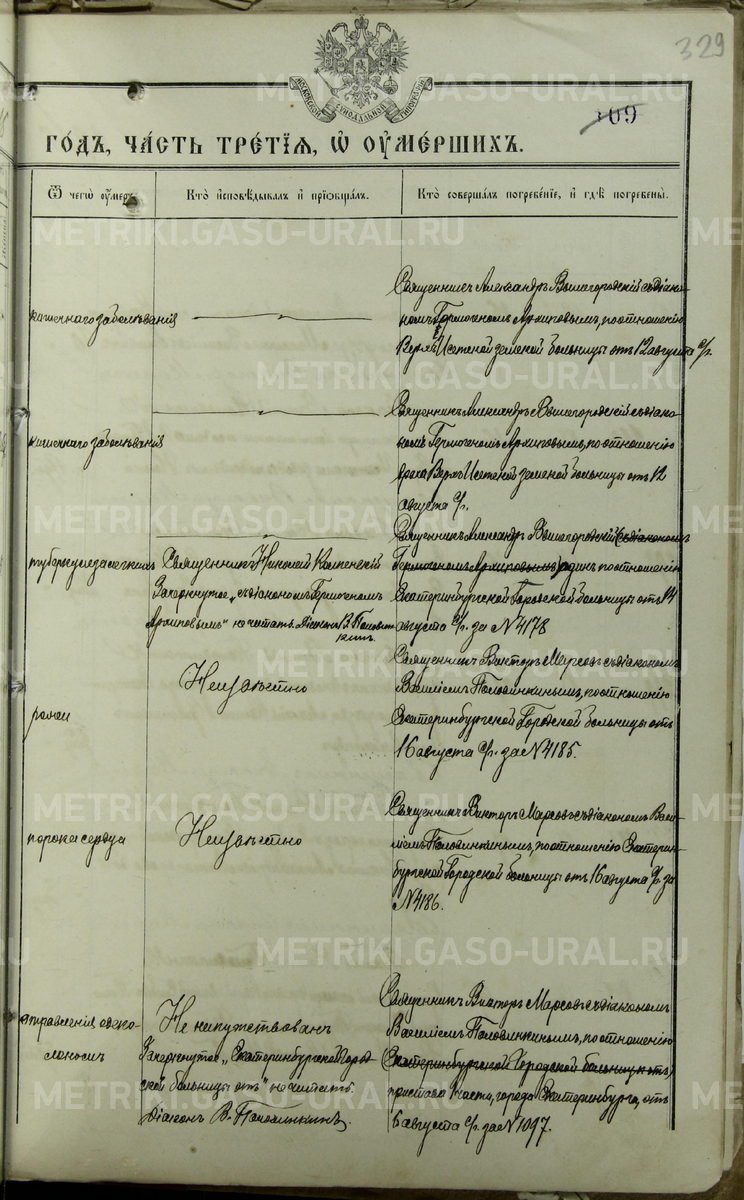 329
309
МОСКОВСКОЙ СѴНОДАЛЬНОЙ ТИПОГРАФІИ
ГО́ДЪ, ЧА́СТЬ ТРЕ́ТІѦ, Ѡ҆ ОУ҆МЕ́РШИХЪ.
Ѿ чегѡ̀ оу҆́меръ.
Кто̀ и҆сповѣ́дывалъ и҆ прїѻбща́лъ.
Кто̀ соверша́лъ погребе́нїе, и҆ гдѣ̀ погребены̀.
кишечнаго заболѣванія
Священникъ Александръ Вышегородскій съ діако-
номъ Гермогеномъ Архиповымъ, по отношенію
Верхъ Исетской земской больницы отъ 12 августа с/г.
кишечнаго заболѣванія
Священникъ Александръ Вышегородскій съ діако-
номъ Гермогеномъ Архиповымъ, по отношенію
врача Верхъ Исетской земской больницы отъ 12
августа с/г.
туберкулеза легкихъ
Священникъ Николай
Зачеркнутое „съ діакономъ Гермогеномъ
Архиповымъ" не читать. Діаконъ В. Половин-
кинъ.
Священникъ Александръ Вышегородскій (съ діакономъ
Гермогеномъ Архиповымъ) одинъ по отношенію
Екатеринбургской Городской больницы отъ 14
августа с/г. за № 4178
Неизвѣстно
Священникъ Викторъ Марсовъ съ діакономъ
Василіемъ Половинкинымъ, по отношенію
Екатеринбургской Городской больницы отъ
16 августа с/г. за № 4185.
порока сердца
Неизвѣстно
Священникъ Викторъ Марсовъ съ діакономъ Васи-
ліемъ Половинкинымъ, по отношенію Екатерин-
бургской Городской больницы отъ 16 августа с/г. за
№ 4186.
отравленія одеко-
лономъ
Не напутствованъ
Зачеркнутое „Екатеринбургской Город-
ской больницы отъ" не читать.
Діаконъ В. Половинкинъ.
Священникъ Викторъ Марсовъ съ діакономъ
Василіемъ Половинкинымъ, по отношенію
(Екатеринбургской Городской больницы отъ)
пристава 1 части, города Екатеринбурга, отъ
6 августа с/г. за № 1097.
METRIKI.GASO-URAL.RU